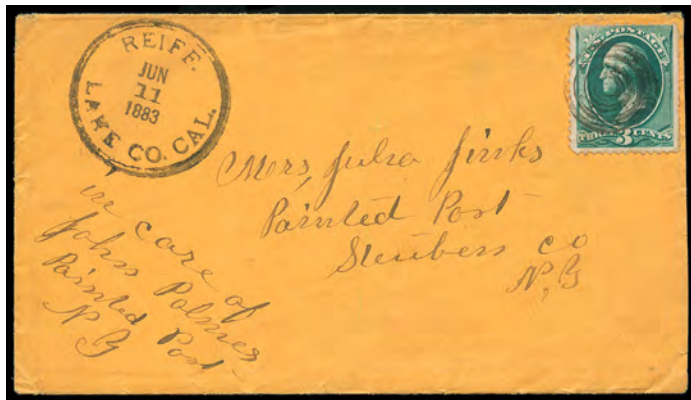 REIFF.
JUN
11
1883
LAKE CO. CAL.
U.S. POSTAGE
THREE 3 CENTS
Mers, Julia Jinks
Painted Post
Steuben co
N, Y
in care of
John Palmes
Painted Post
N Y